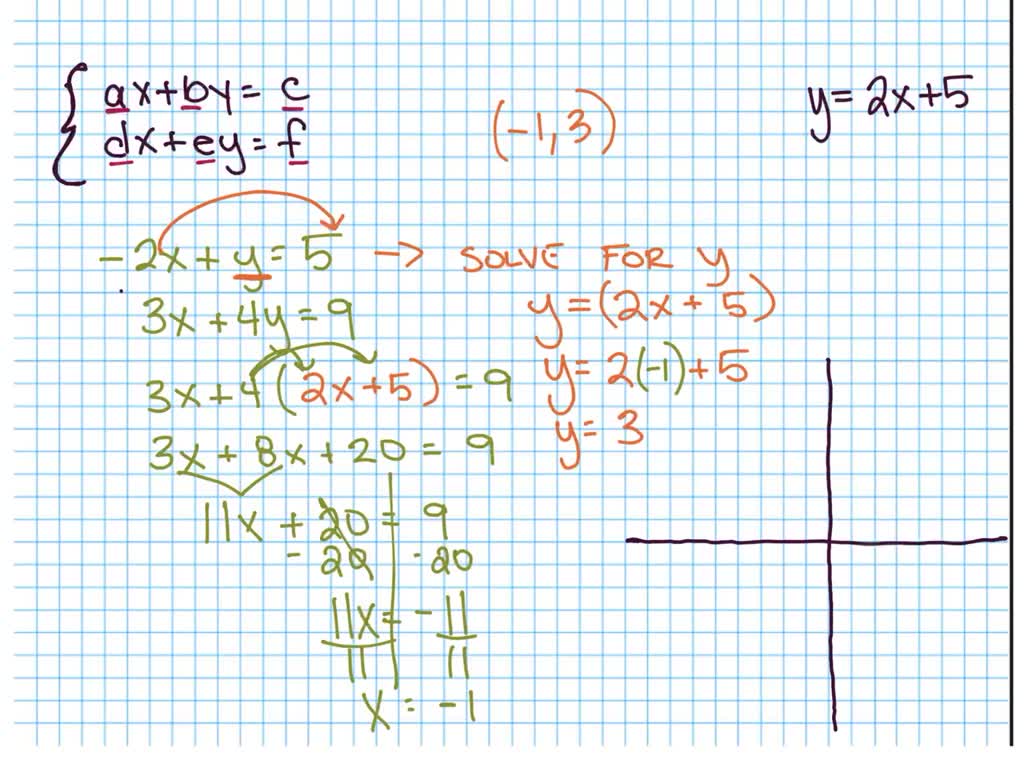 ax+by=c
dx+ey=f
(-1,3)
y=2x+5
-2x+y=5 → SOLVE FOR y
3x+4y=9
y=(2x+5)
3x+4(2x+5)=9
y=2(-1)+5
3x+8x+20=9
y=3
11x+20=9
-20 -20
11x=-11
11 11
x=-1